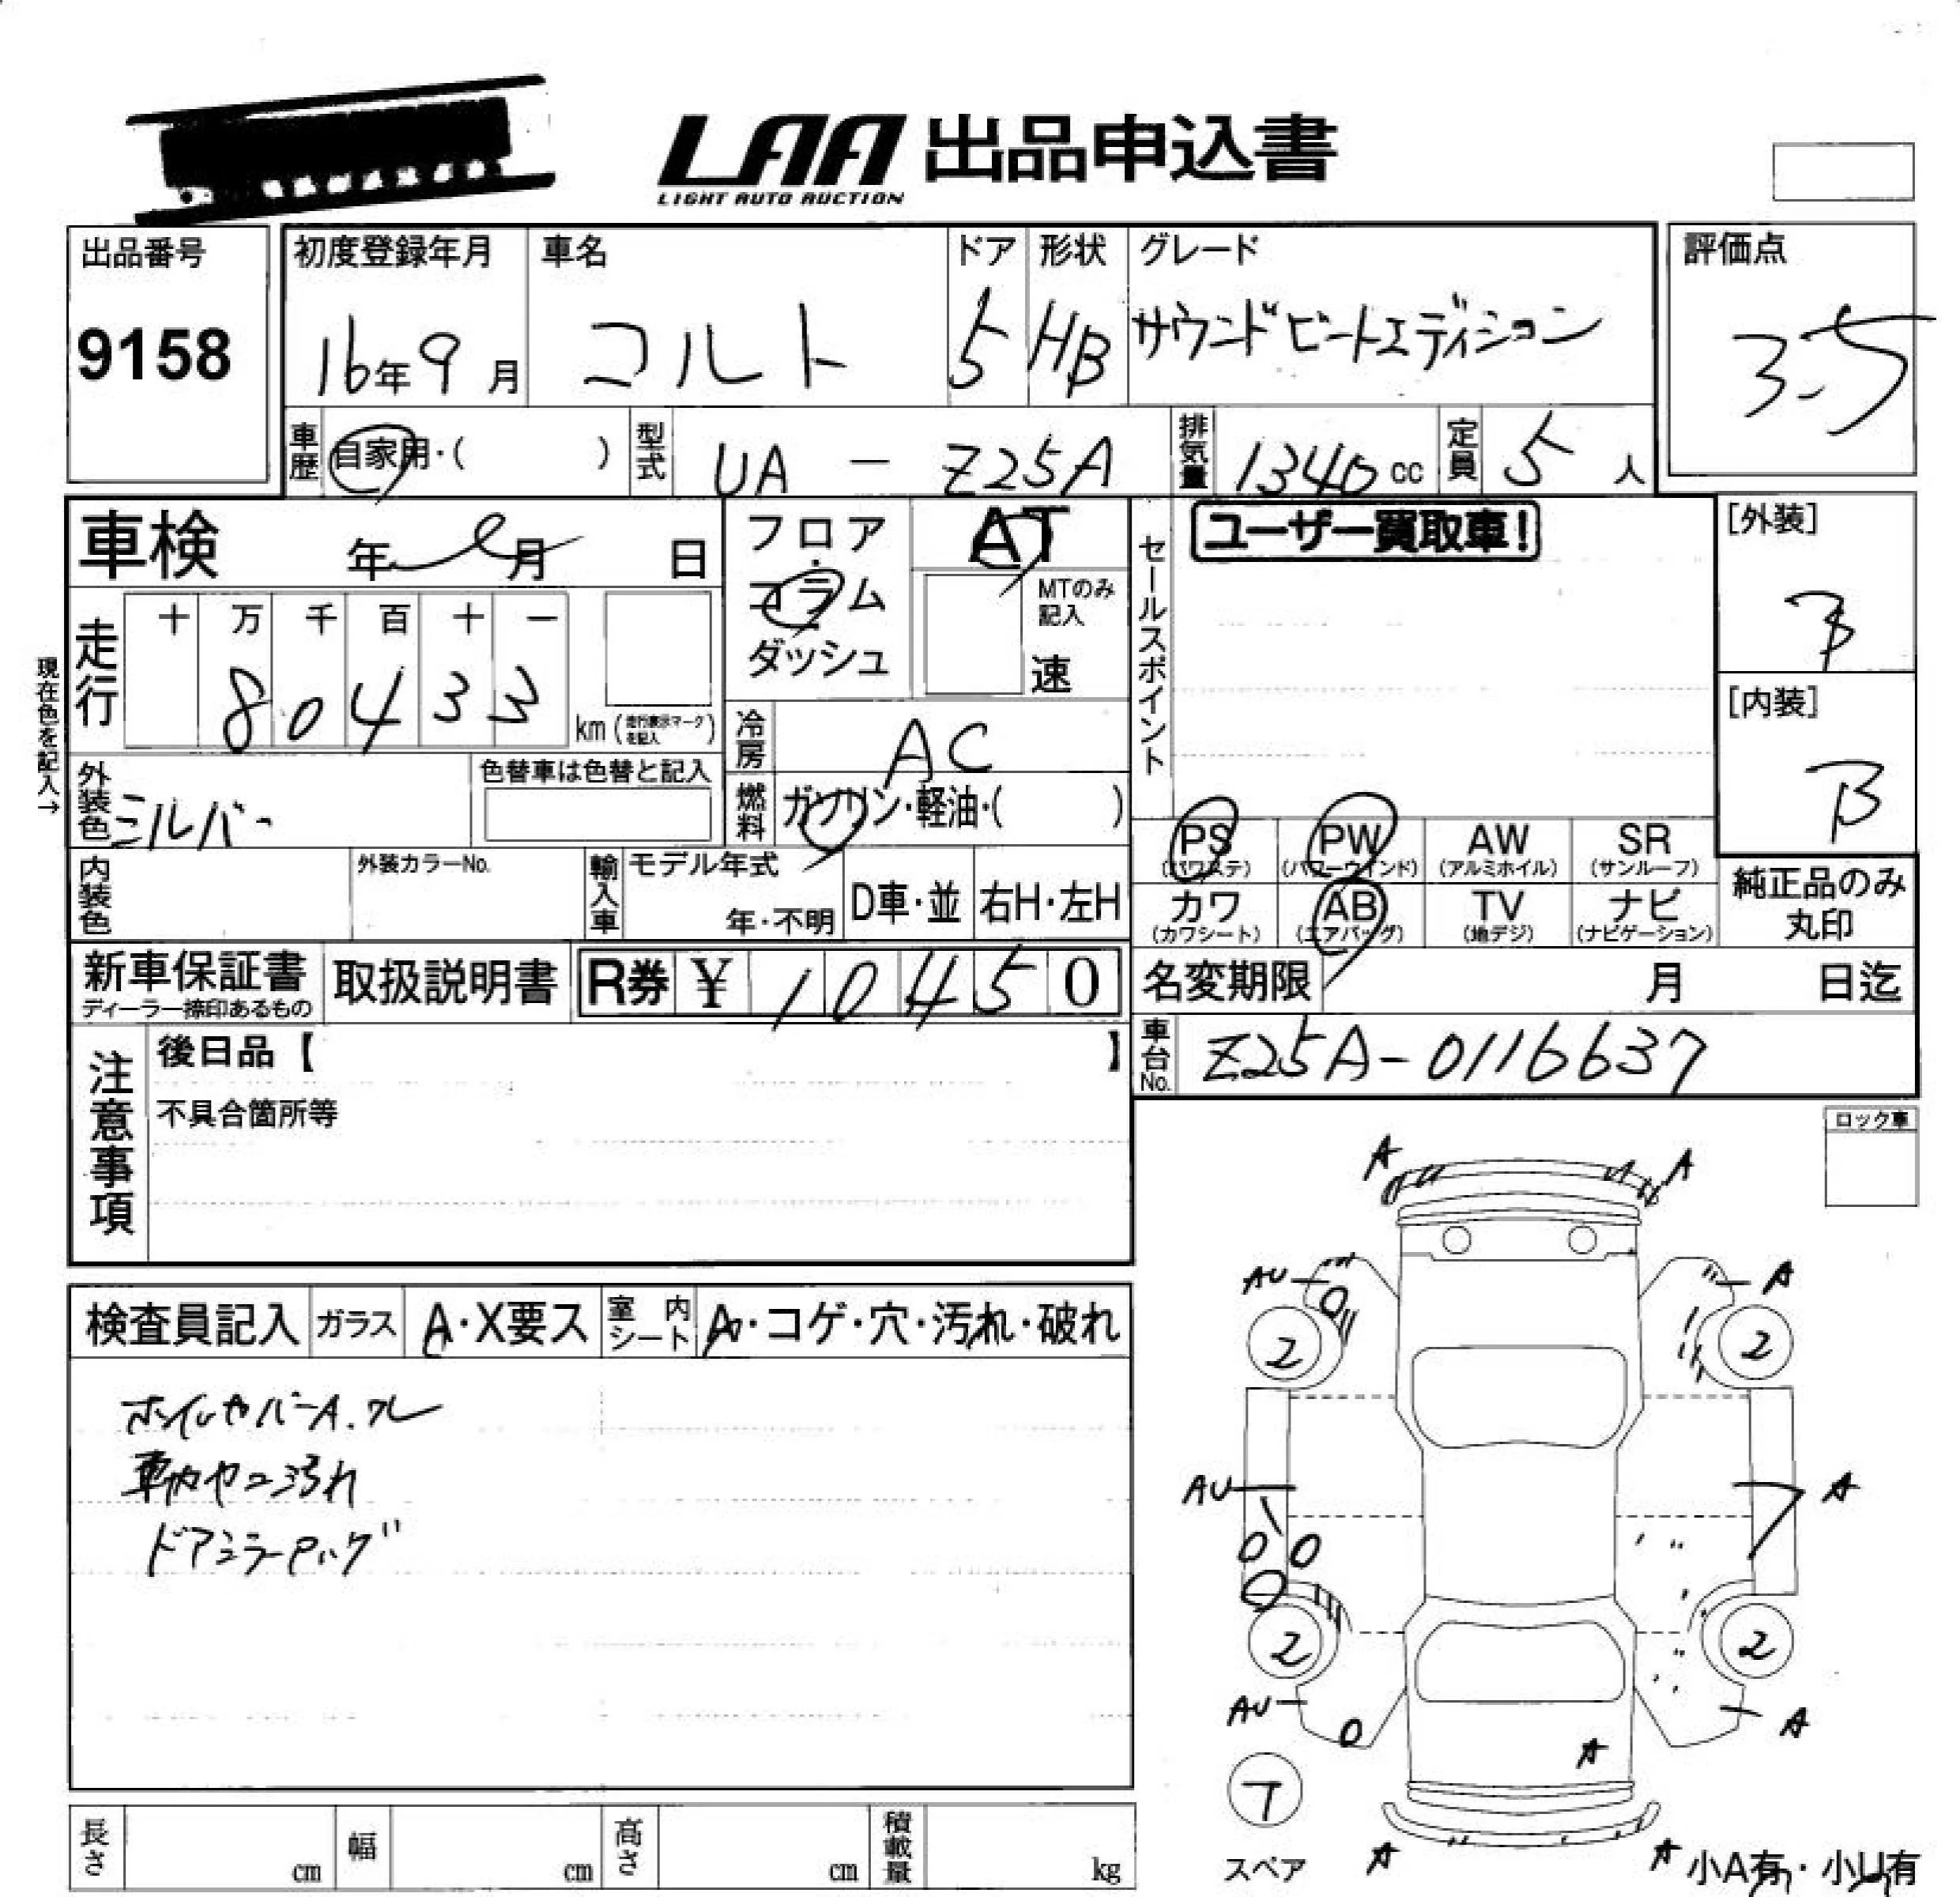 LAA 出品申込書
LIGHT AUTO AUCTION
出品番号
9158
初度登録年月
16年9月
車名
コルト
ドア
5
形状
HB
グレード
サウンドビートエディション
評価点
3.5
車歴
自家用・( )
型式
UA - Z25A
排気量
1340 cc
定員
5人
車検 年 月 日
フロア
・
コラム
・
ダッシュ
AT
MTのみ
記入
速
セールスポイント
ユーザー買取車!
[外装]
B
[内装]
B
現在色を記入→
走行
十 万 千 百 十 一
8 0 4 3 3
km (走行表示マークを記入)
冷房
AC
外装色
シルバー
色替車は色替と記入
燃料
ガソリン・軽油・( )
PS (パワステ)
PW (パワーウインド)
AW (アルミホイル)
SR (サンルーフ)
カワ (カワシート)
AB (エアバッグ)
TV (地デジ)
ナビ (ナビゲーション)
純正品のみ
丸印
内装色
外装カラーNo.
輸入車
モデル年式
年・不明
D車・並
右H・左H
新車保証書
ディーラー捺印あるもの
取扱説明書
R券 ¥ 10450
名変期限 月 日迄
車台No.
Z25A-0116637
注意事項
後日品【 】
不具合箇所等
ロック車
検査員記入
ガラス
A・X要ス
室内シート
A・コゲ・穴・汚れ・破れ
ホイルカバーA.ワレ
車内ヤニ汚れ
ドアミラーPハゲ
A
A
AU
A
2
2
AU
A
2
2
AU
A
A
T
スペア
A
A
小A有・小U有
長さ cm
幅 cm
高さ cm
積載量 kg